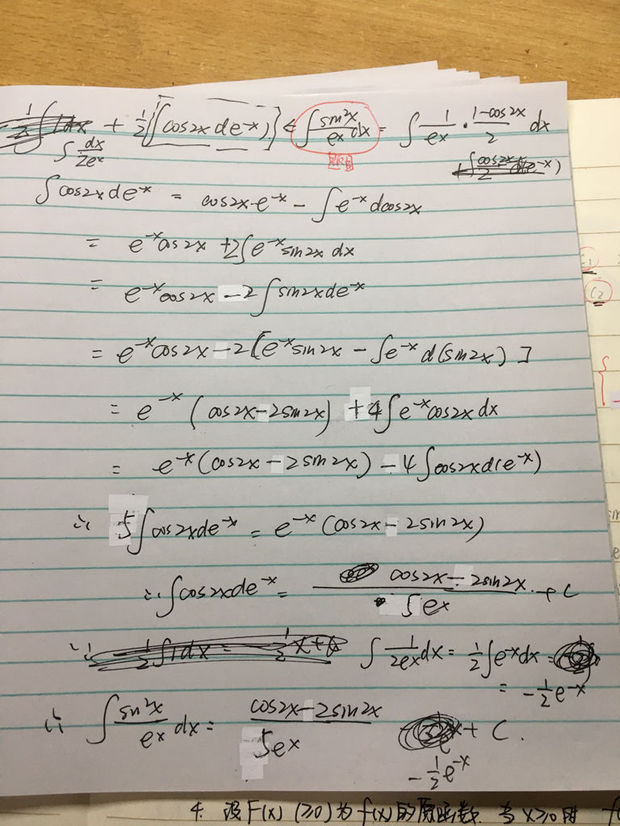 ∫ dx/2eˣ + 1/2[∫cos2x de⁻ˣ] ⇐ ∫ sin²x/eˣ dx = ∫ 1/eˣ · (1-cos2x)/2 dx
原题
∫cos2x de⁻ˣ = cos2x·e⁻ˣ - ∫e⁻ˣ dcos2x
= e⁻ˣcos2x + 2∫e⁻ˣ sin2x dx
= e⁻ˣcos2x - 2∫sin2x de⁻ˣ
= e⁻ˣcos2x - 2[e⁻ˣsin2x - ∫e⁻ˣ d(sin2x)]
= e⁻ˣ (cos2x - 2sin2x) + 4∫e⁻ˣcos2x dx
= e⁻ˣ(cos2x - 2sin2x) - 4∫cos2x d(e⁻ˣ)
∴ 5∫cos2x de⁻ˣ = e⁻ˣ (cos2x - 2sin2x)
∴ ∫cos2x de⁻ˣ = (cos2x - 2sin2x)/5eˣ + C
∫ 1/2eˣ dx = 1/2∫e⁻ˣ dx =
= -1/2 e⁻ˣ
∴ ∫ sin²x/eˣ dx = (cos2x - 2sin2x)/5eˣ + C.
-1/2 e⁻ˣ
4. 设F(x) (≥0)为f(x)的原函数. 当x≥0时